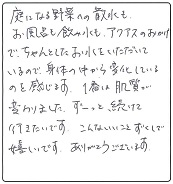 庭になる野菜への散水も、
お風呂も飲み水も、アクアスのおかげ
で、ちゃんとしたお水をいただいて
いるので、身体の中から変化している
のを感じます。1番は肌質が
変わりました。ずーっと続けて
行きたいです。こんないいことずくしで
嬉しいです。ありがとうございます。